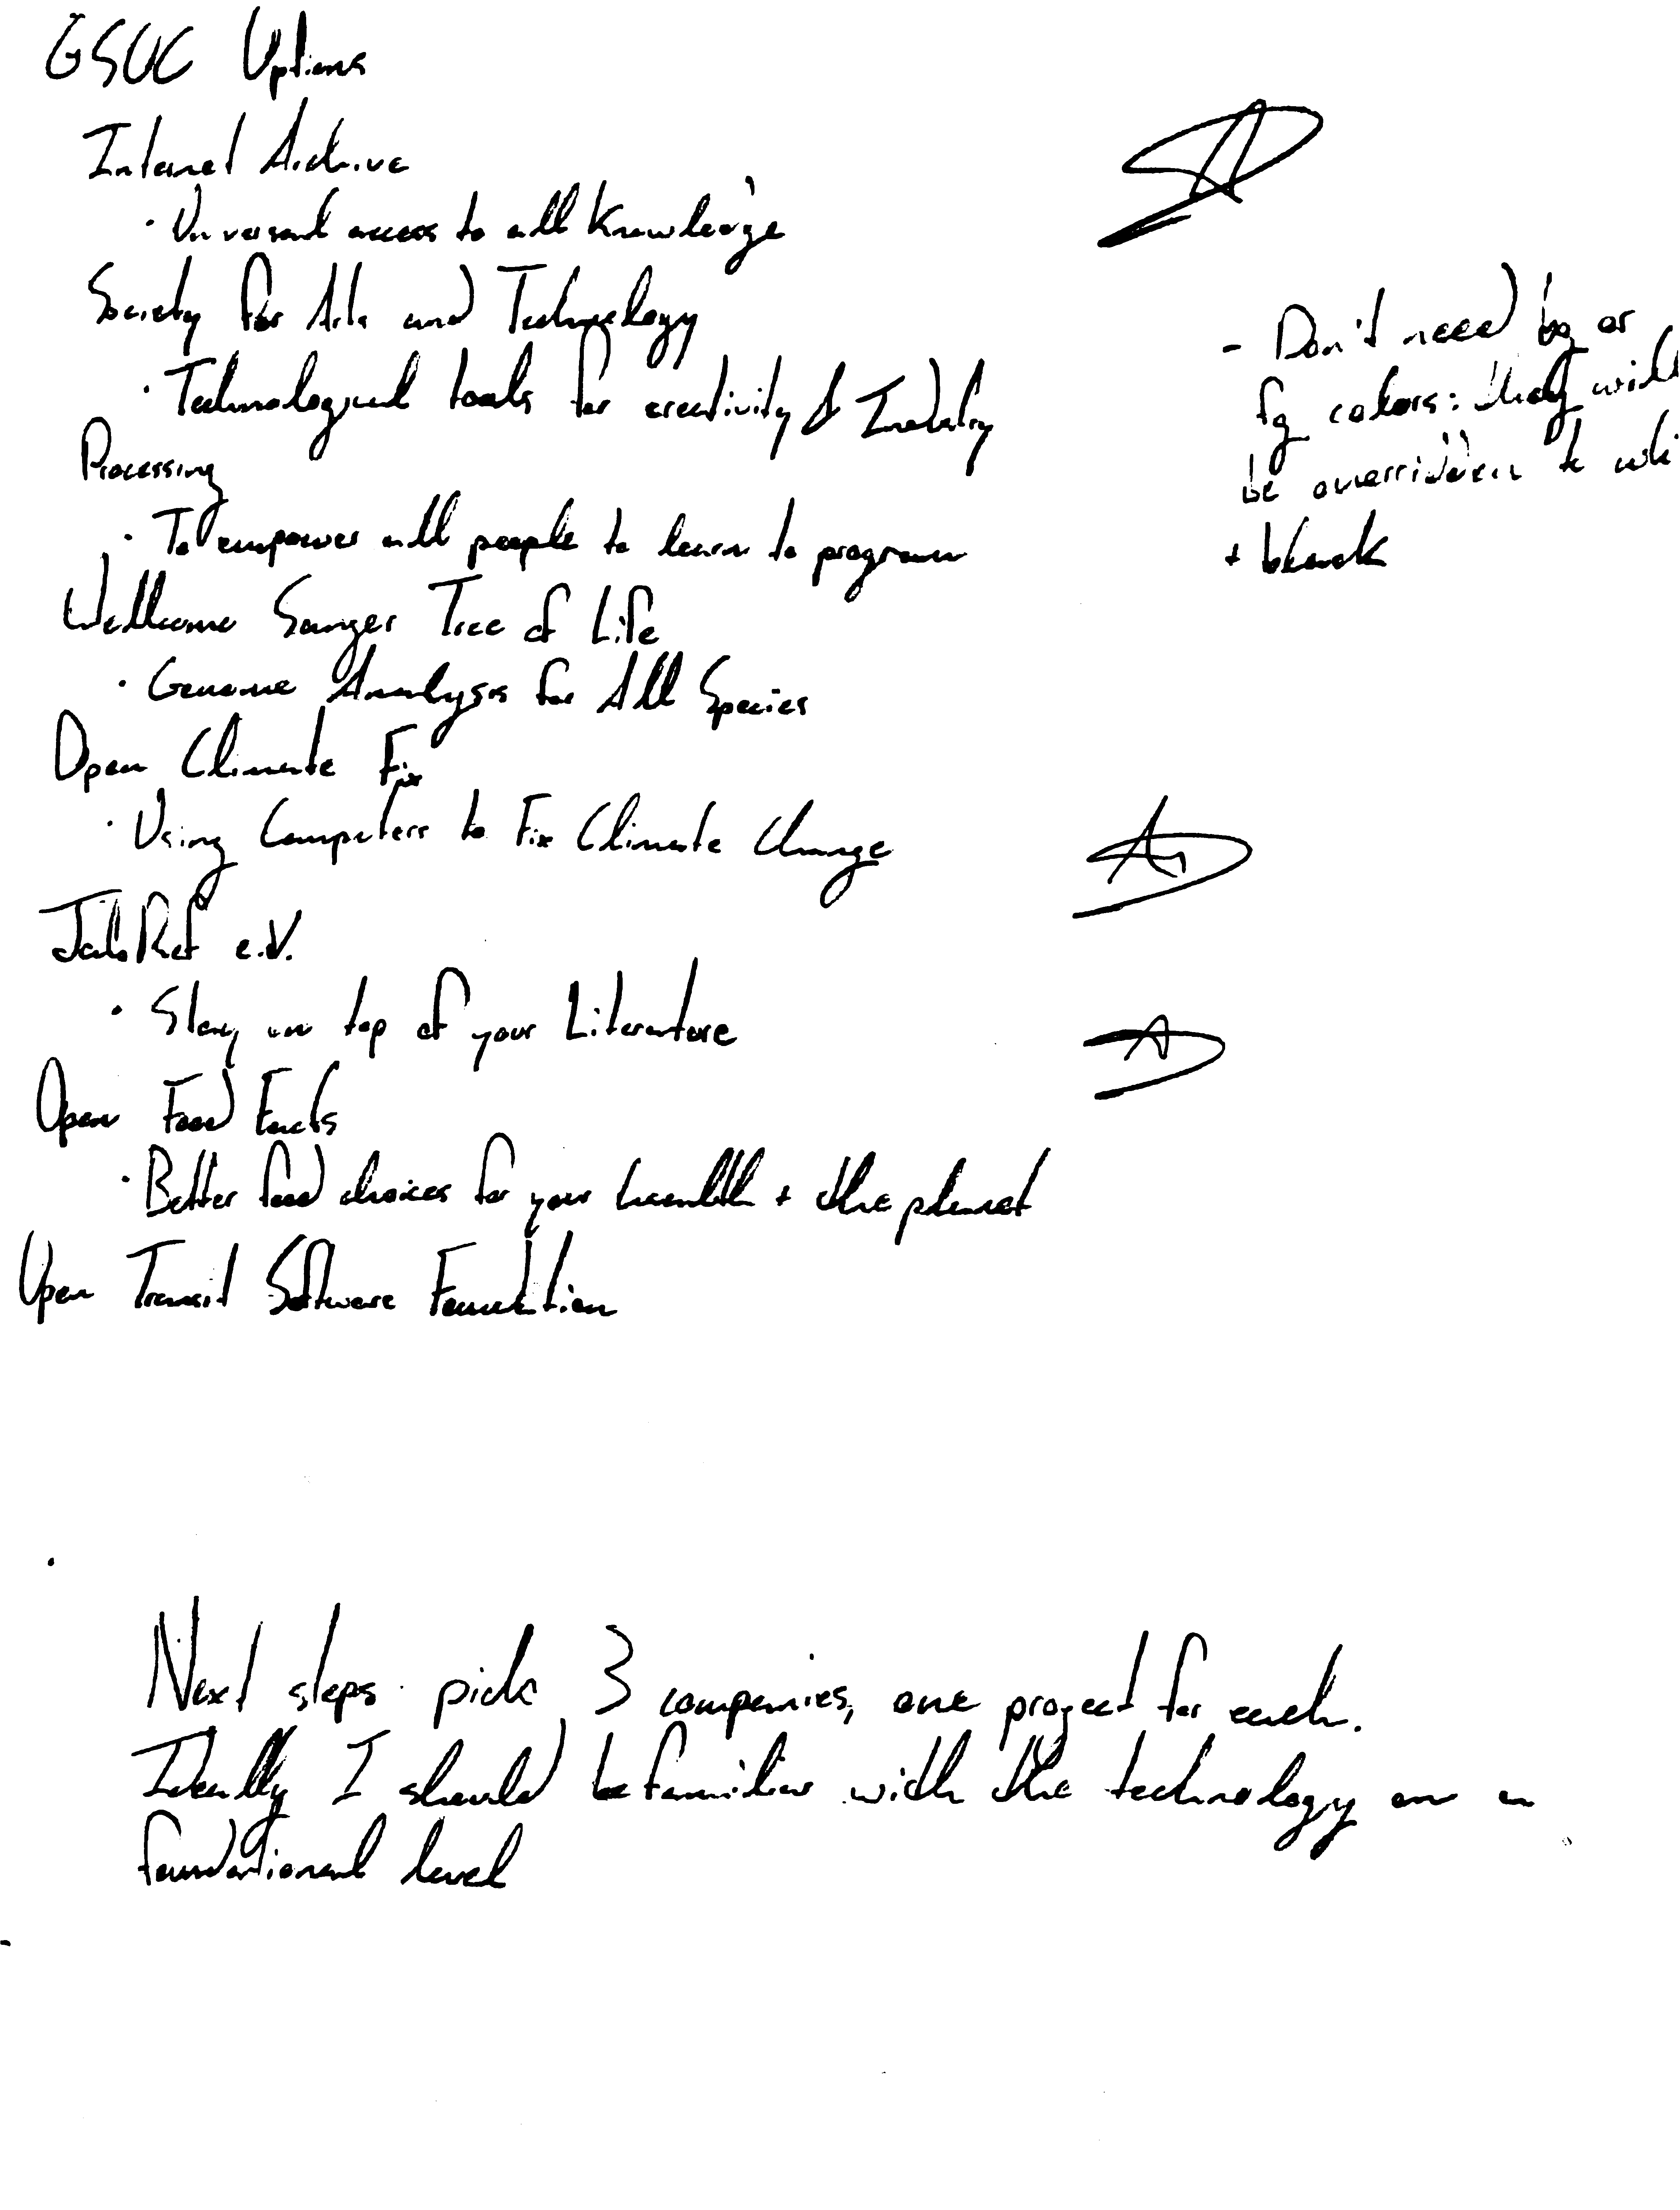 GSOC Options
Internet Archive
· Universal access to all Knowledge
Society for Arts and Technology
· Technological tools for creativity & Industry
Processing
· To empower all people to learn to program
Wellcome Sanger Tree of Life
· Genome Analysis for All Species
Open Climate Fix
· Using Computers to Fix Climate Change
JabRef e.V.
· Stay on top of your Literature
Open Food Facts
· Better food choices for your health + the planet
Open Transit Software Foundation
- Don't need bg or
fg colors: they will
be overridden to
+ black
Next steps · pick 3 companies, one project for each.
Ideally I should be familiar with the technology on a
foundational level